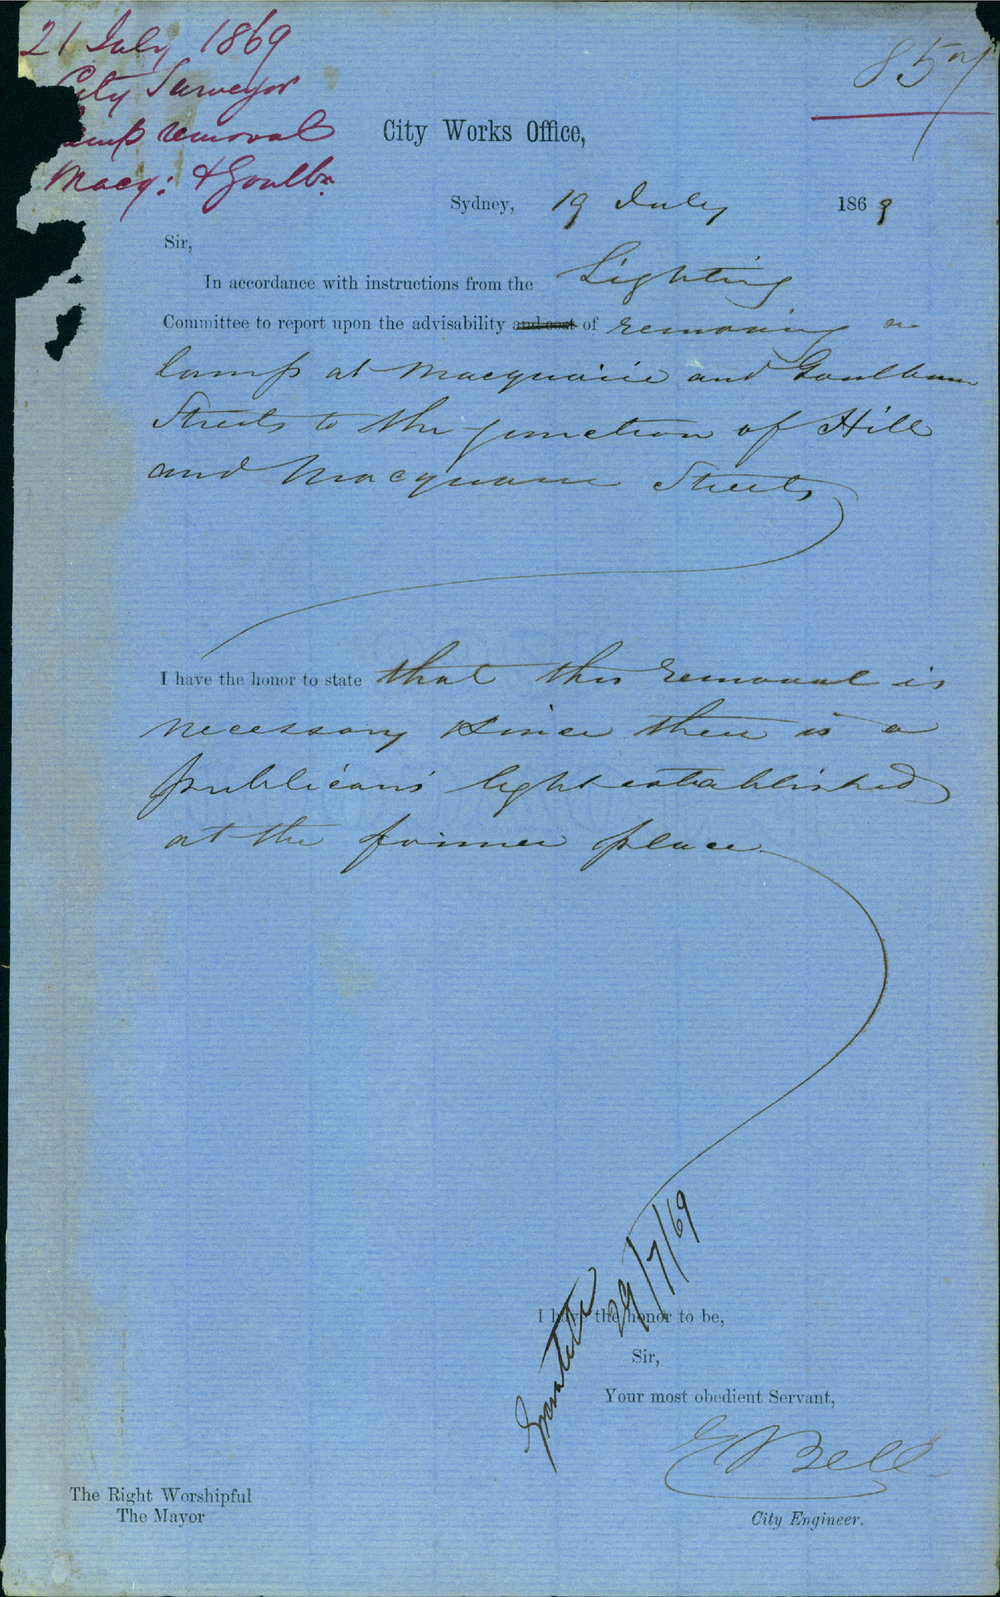 21 July 1869
City Surveyor
Lamp removal
Macq: & Goulbn
857
City Works Office,
Sydney, 19 July 1869
Sir,
In accordance with instructions from the Lighting
Committee to report upon the advisability and cost of removing a
lamp at Macquarie and Goulburn
Streets to the junction of Hill
and Macquarie Streets
I have the honor to state that this removal is
necessary since there is a
publican's light established
at the former place
29/7/69
I have the honor to be,
Sir,
Your most obedient Servant,
E Bell
City Engineer.
The Right Worshipful
The Mayor